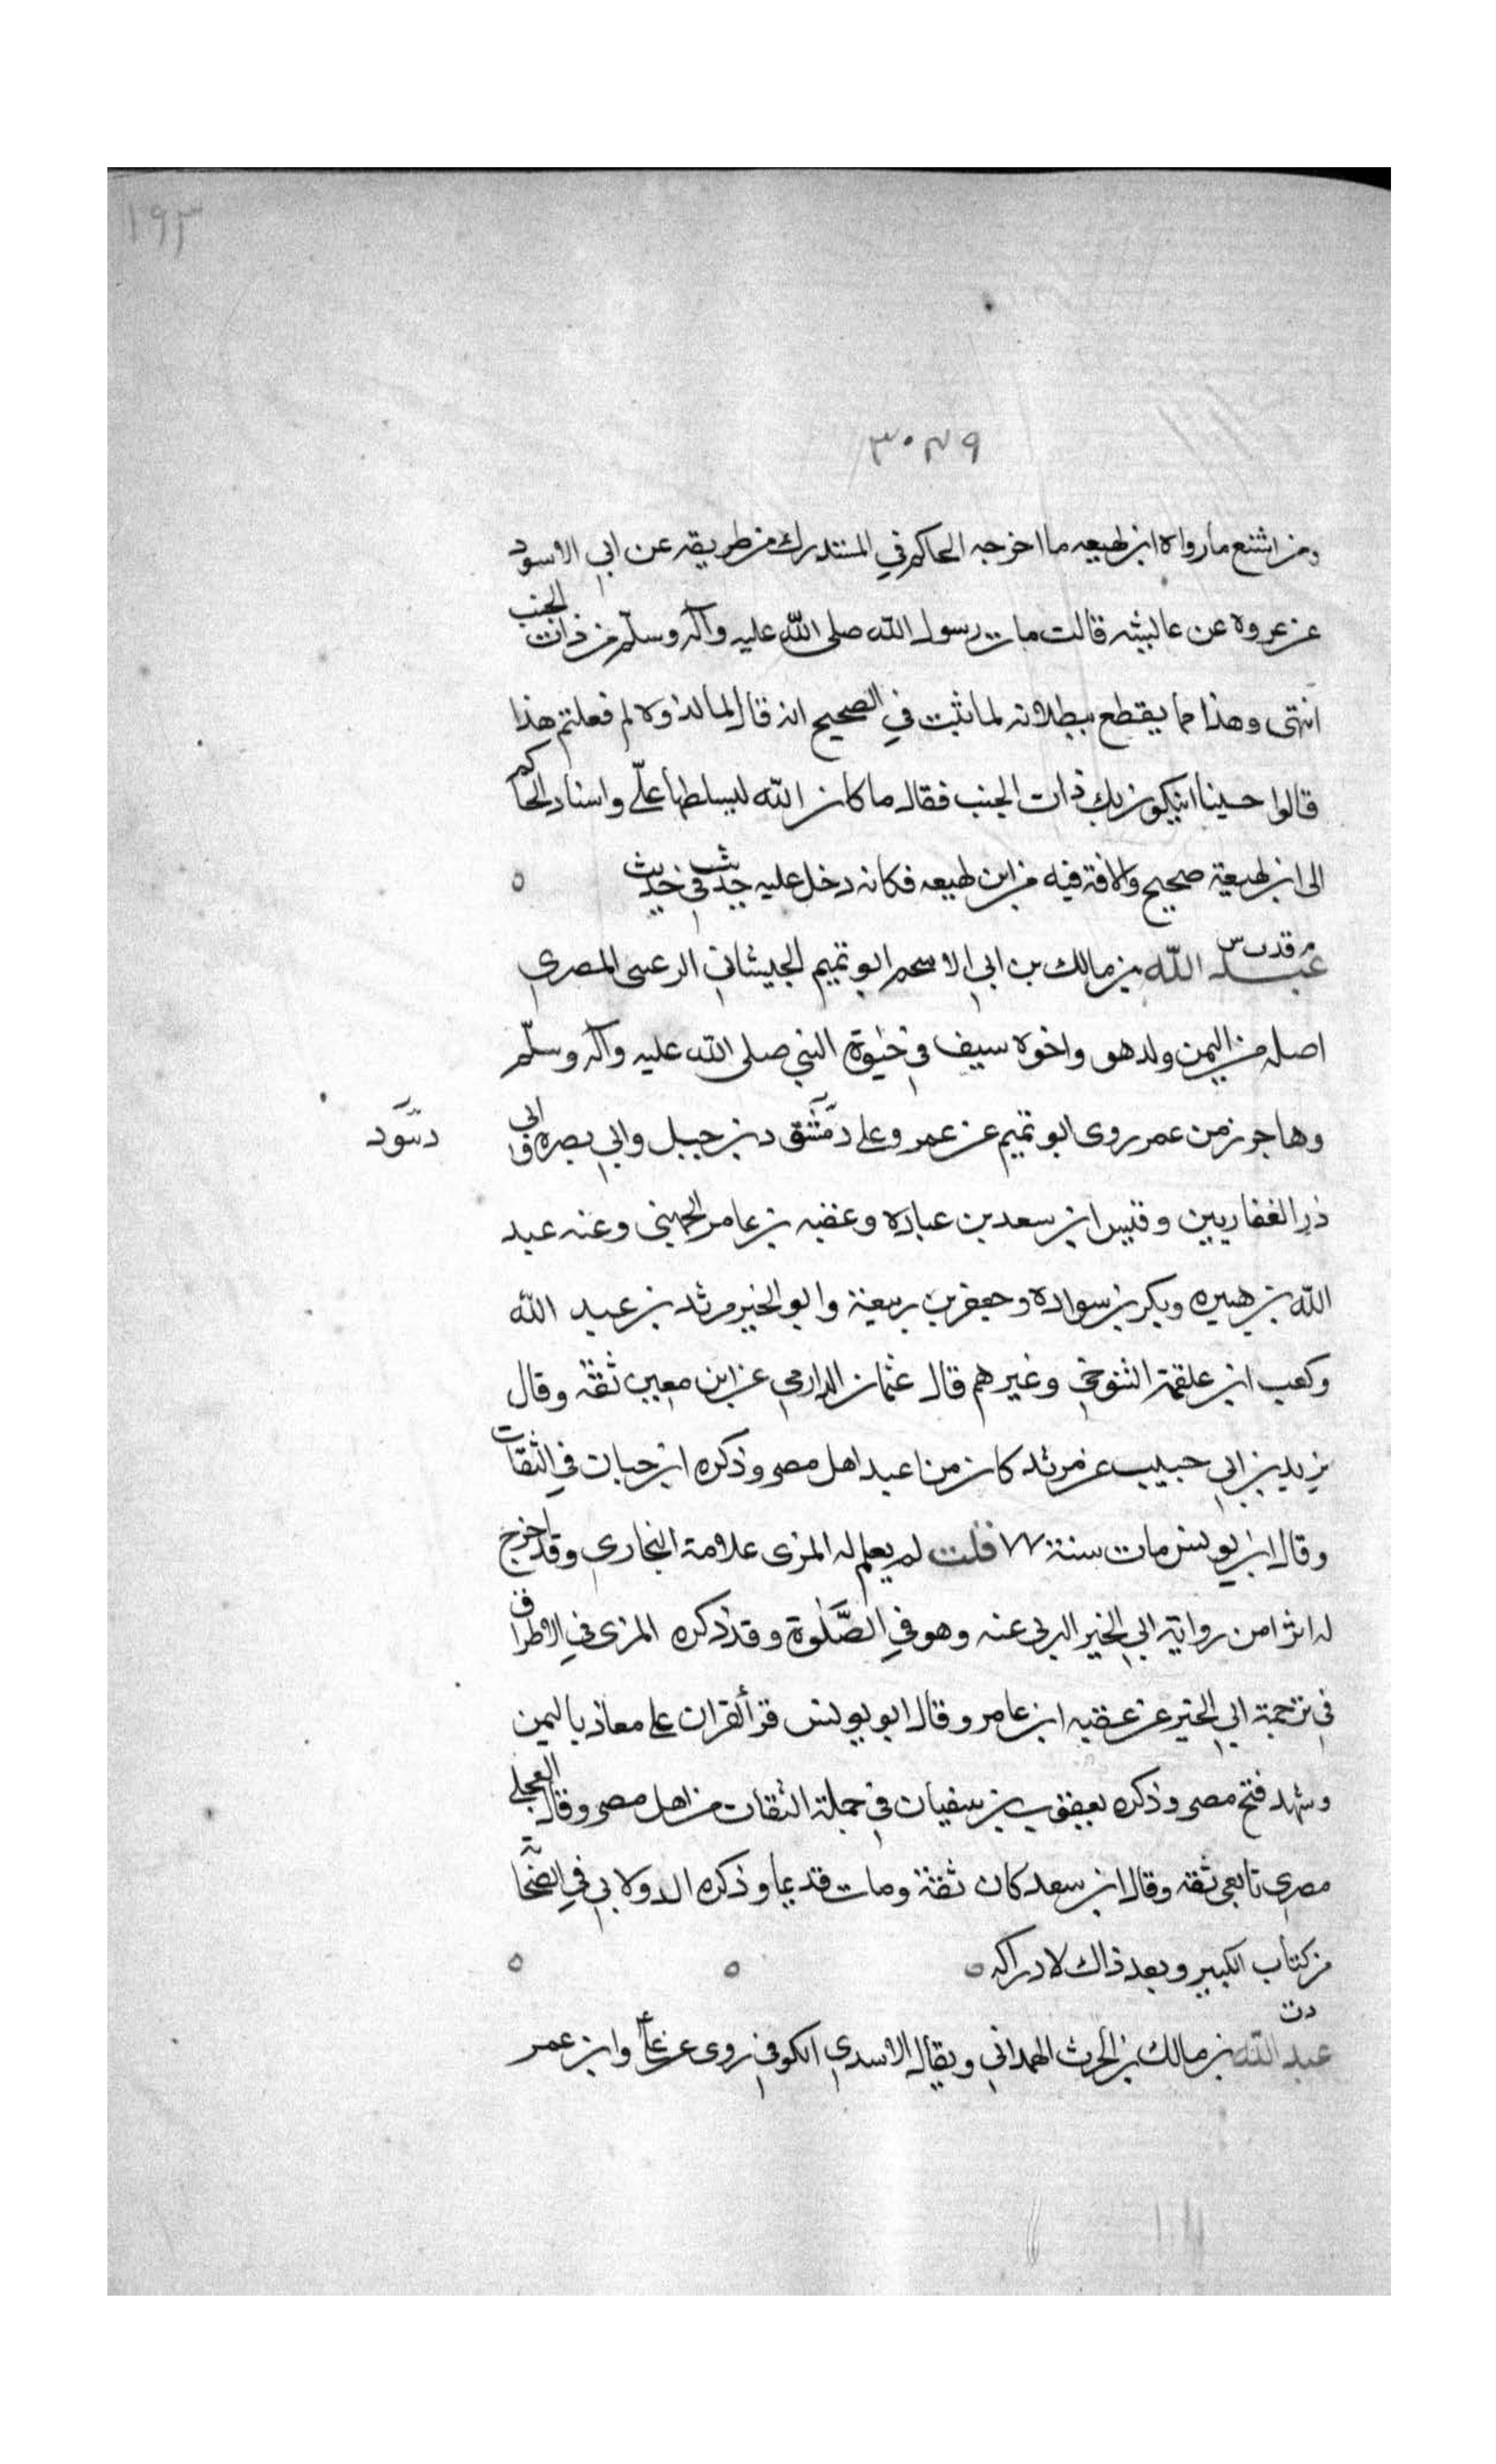 ١٩٣
٣٠٤٩
ومن اشنع ما رواه ابن لهيعه ما اخرجه الحاكم في المستدرك من طريقه عن ابي الاسود
عن عروه عن عائشه قالت مات رسول الله صلى الله عليه وآله وسلم من ذات الجنب
انتهى وهذا مما يقطع ببطلانه لما ثبت في الصحيح انه قال لما لدوه لم فعلتم هذا
قالوا حسبنا ان يكون بك ذات الجنب فقال ما كان الله ليسلطها علّي واسناد الحاكم
الى ابن لهيعة صحيح والافة فيه من ابن لهيعه فكانه دخل عليه حديث في حديث
م قد ت س
عبد الله بن مالك بن ابي الاسحم ابو تميم الجيشاني الرعينى المصري
اصله من اليمن ولد هو واخوه سيف في حيوة النبي صلى الله عليه وآله وسلّم
وهاجر زمن عمر روى ابو تميم عن عمر وعلي دمشق د بن جبل وابي بصره وابي
ذر الغفاريين وقيس ابن سعد بن عباده وعقبه بن عامر الجهني وعنه عبد
الله بن هبيره وبكر بن سواده وجعفر بن ربيعة وابو الخير مرثد بن عبد الله
وكعب ابن علقمة التنوخي وغيرهم قال عثمان الدارمي عن ابن معين ثقة وقال
يزيد بن ابي حبيب عن مرثد كان من اعبد اهل مصر وذكره ابن حبان في الثقات
وقال ابن يونس مات سنة ٧٧ قلت لم يعلم له المزى علامة البخاري وقد اخرج
له اثرا من رواية ابي الخير اليزني عنه وهو في الصَّلوة وقد ذكره المزى في الاطراف
في ترجمة ابي الخير عن عقبه ابن عامر وقال ابو يونس قرأ القران على معاذ باليمن
وشهد فتح مصر وذكره يعقوب بن سفيان في جملة الثقات من اهل مصر وقال العجلي
مصري تابعي ثقه وقال ابن سعد كان ثقة ومات قديما وذكره الدولابي في الصَّحابة
من كتاب الكبير وبعد ذاك لادراكه
دت
عبد الله بن مالك بن الحرث الهمداني ويقال الاسدي الكوفي روى عن علي وابن عمر